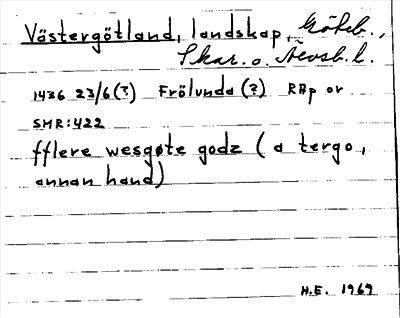 Västergötland, landskap, Göteb.,
Skar. o. Älvsb. l.
1436 23/6(?) Frölunda(?) RAp or
SMR:422
fflere wesgøte godz (a tergo,
annan hand)
H.E. 1969